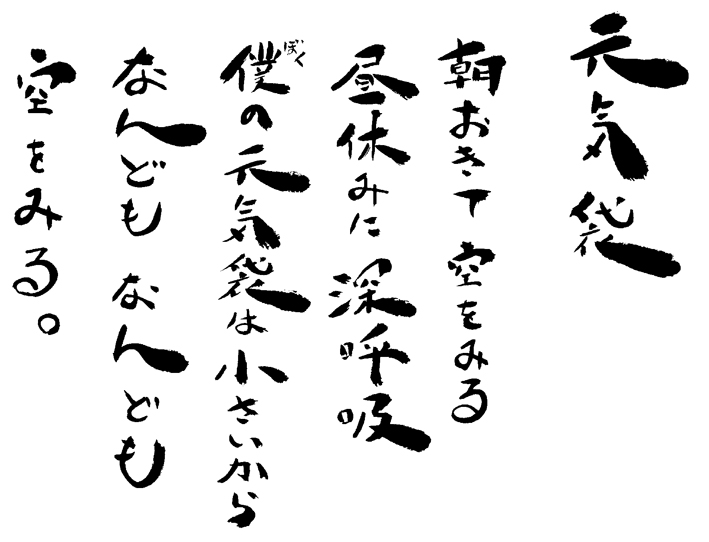 元気袋
朝おきて 空をみる
昼休みに 深呼吸
僕の元気袋は小さいから
ぼく
なんども なんども
空をみる。